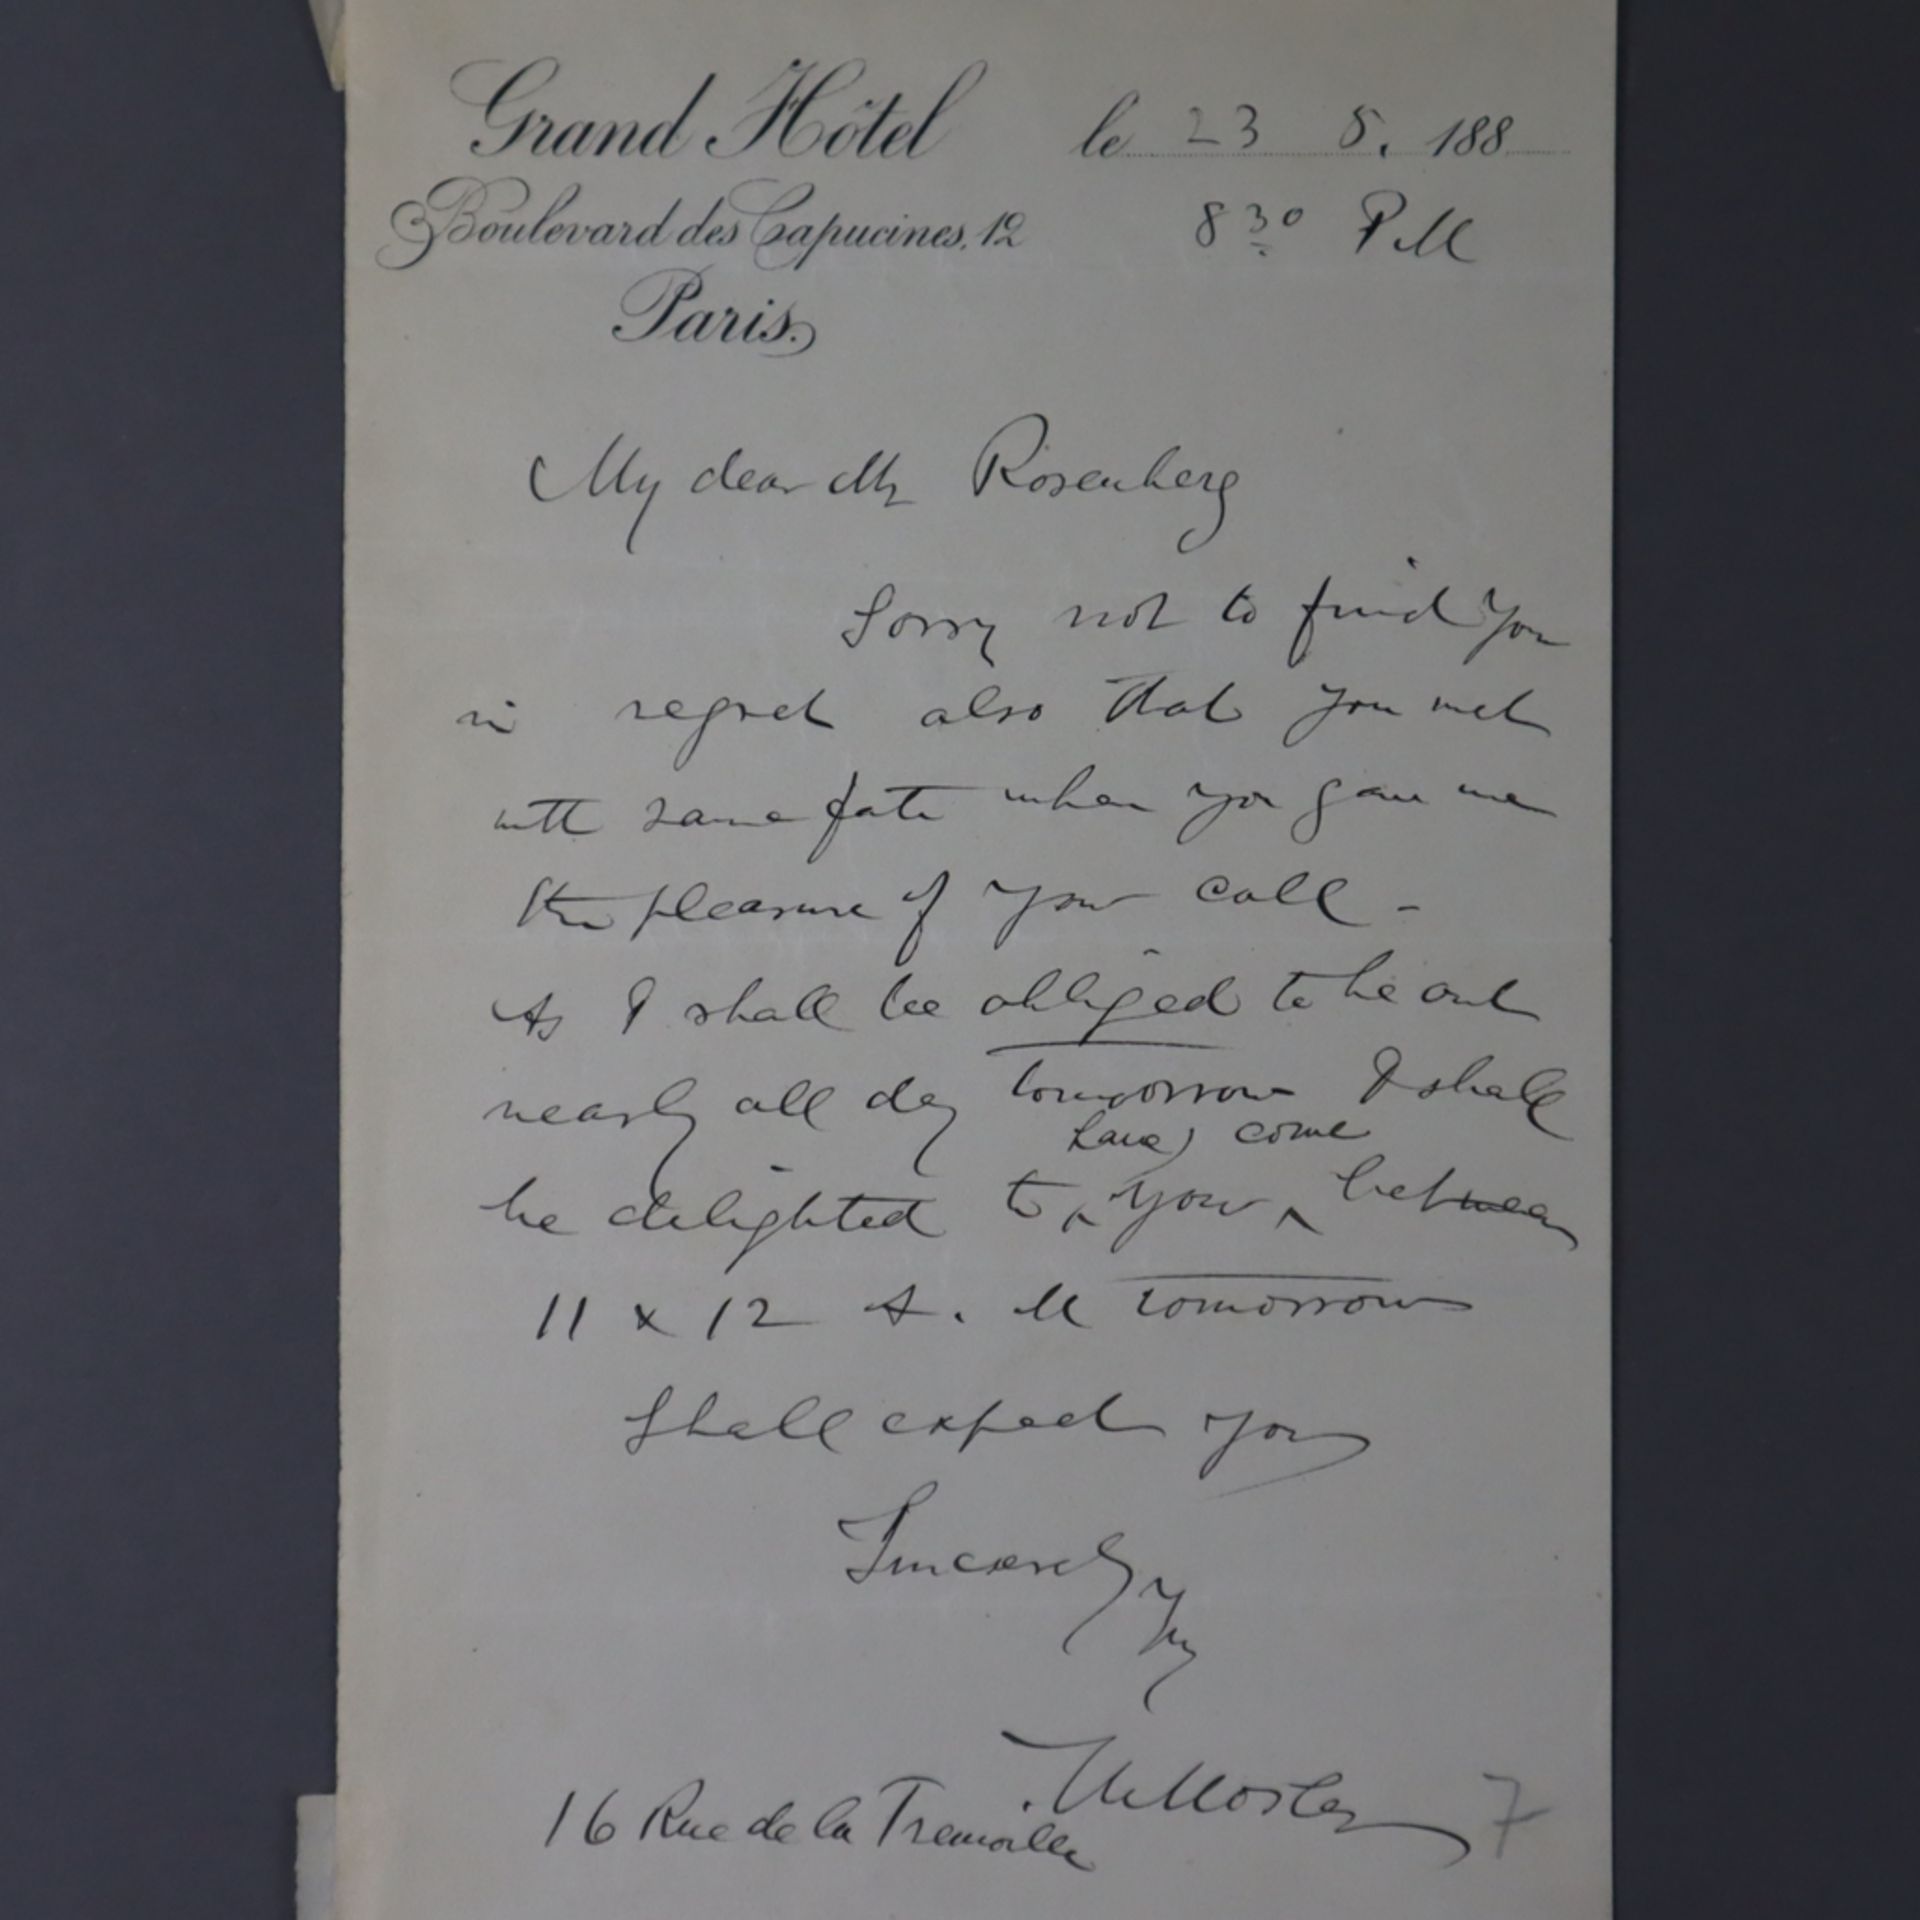 Grand Hôtel le 23 5. 188
Boulevard des Capucines, 12 8 30 P.M
Paris.
My dear Mr Rosenberg
Sorry not to find you
in regret also that you met
with same fate when you gave me
the pleasure of your call -
As I shall be obliged to be out
nearly all day tomorrow I shall
have come
be delighted to ‸ your ‸ between
11 x 12 A. M tomorrow
Shall expect you
Sincerely Yrs
16 Rue de la Tremoille 7